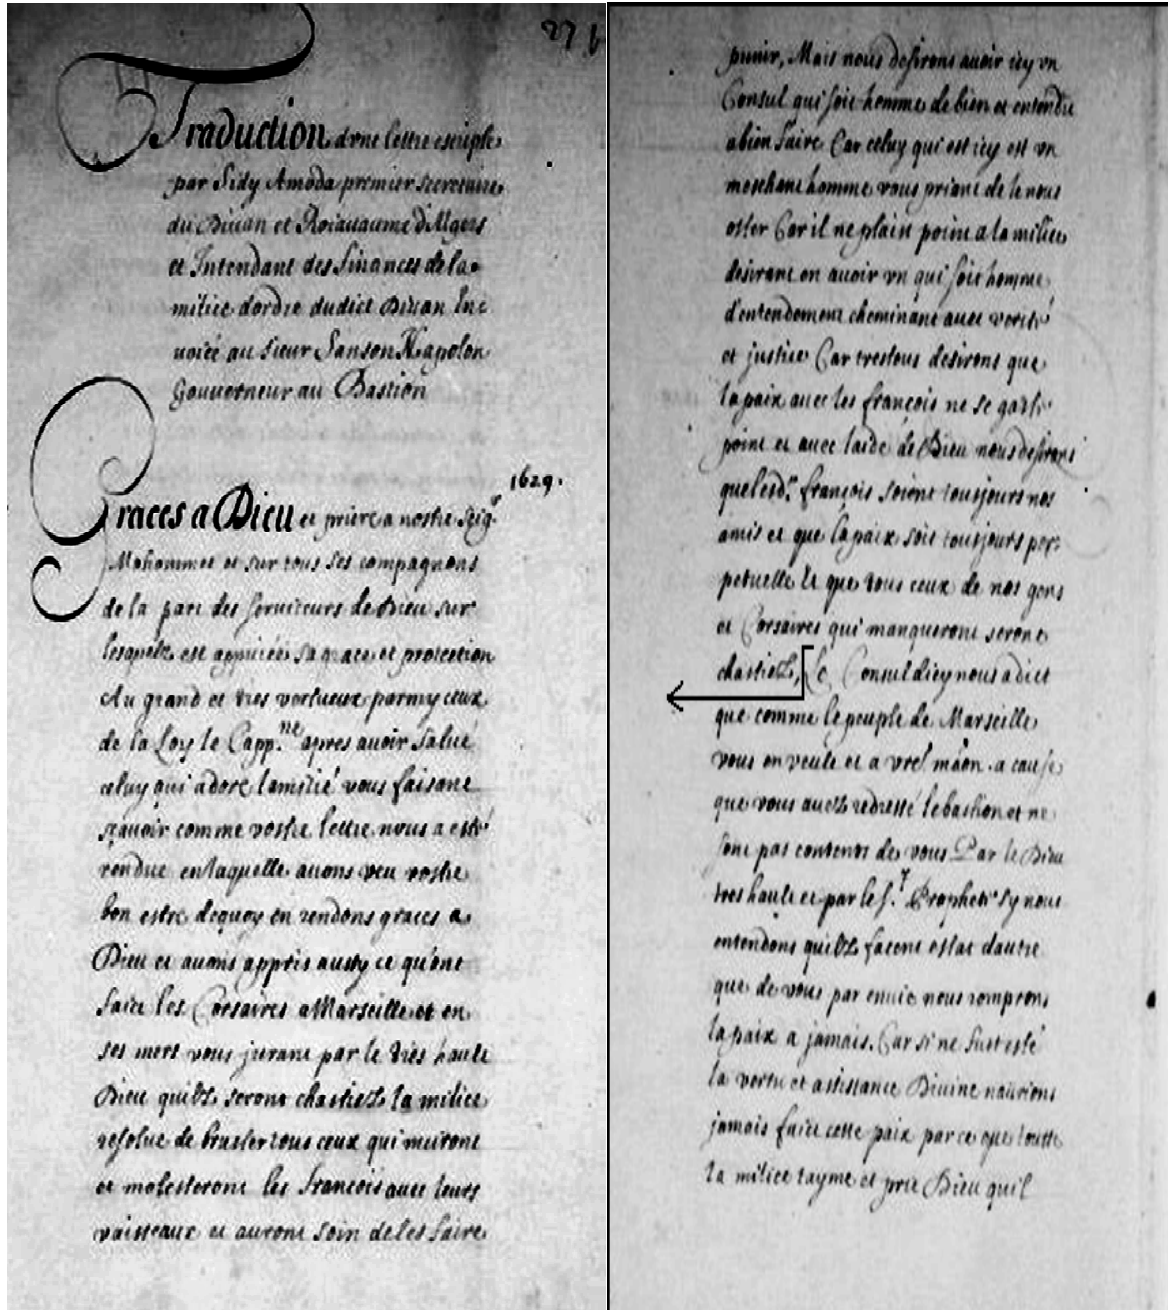 271
Traduction d'vne lettre escripte
par Sidy Amoda premier secretaire
du Diuan et Roiauaume d'Algers
et Intendant des finances de la
milice d'ordre dudict Diuan En
uoiéé au sieur Sanson Napolon
Gouuerneur au Bastion
1629.
Graces a Dieu et priere a nostre Seigr
Mahommet et sur tous ses compagnons
de la part des seruiteurs de Dieu sur
lesquelz est appuiéé sa grace et protection
Au grand et tres vertueux parmy ceux
de la Loy le Cappne apres auoir salué
celuy qui adore lamitié vous faisont
sçauoir comme vostre lettre nous a esté
rendue en laquelle auons veu vostre
bon estre dequoy en rendons graces a
Dieu et auons appris aussy ce qu'ont
faict les Corsaires a Marseille et en
ses mers vous jurant par le tres hault
Dieu quilz seront chastiez la milice
resolue de brusler tous ceux qui
et molesteront les francois auec leurs
vaisseaux et auront soin de les faire
punir, Mais nous desirons auoir icy vn
Consul qui soit homme de bien et entendu
a bien faire Car celuy qui est icy est vn
meschant homme vous priant de le nous
oster Car il ne plaist point a la milice
desirant en auoir vn qui soit homme
d'entendement cheminant auec verité
et justice Car trestous desirons que
la paix auec les françois ne se gaste
point et auec l'aide de Dieu nous desirons
que lesd.ts françois soient tousjours nos
amis et que la paix soit tousjours per=
petuelle et que tous ceux de nos gens
et Corsaires qui manqueront seront
chastiez, Le Consul d'icy nous a dict
que comme le peuple de Marseille
vous en veult et a vre maon a cause
que vous auez redressé le bastion et ne
sont pas contents de vous Par le Dieu
tres hault et par le s.t Prophete sy nous
entendons quilz facent estat d'autre
que de vous par enuie nous romprons
la paix a jamais. Car si ne fust esté
la vertu et assistance Diuine n'aurions
jamais faict cette paix par ce que toutte
la milice l'ayme et prie Dieu quil